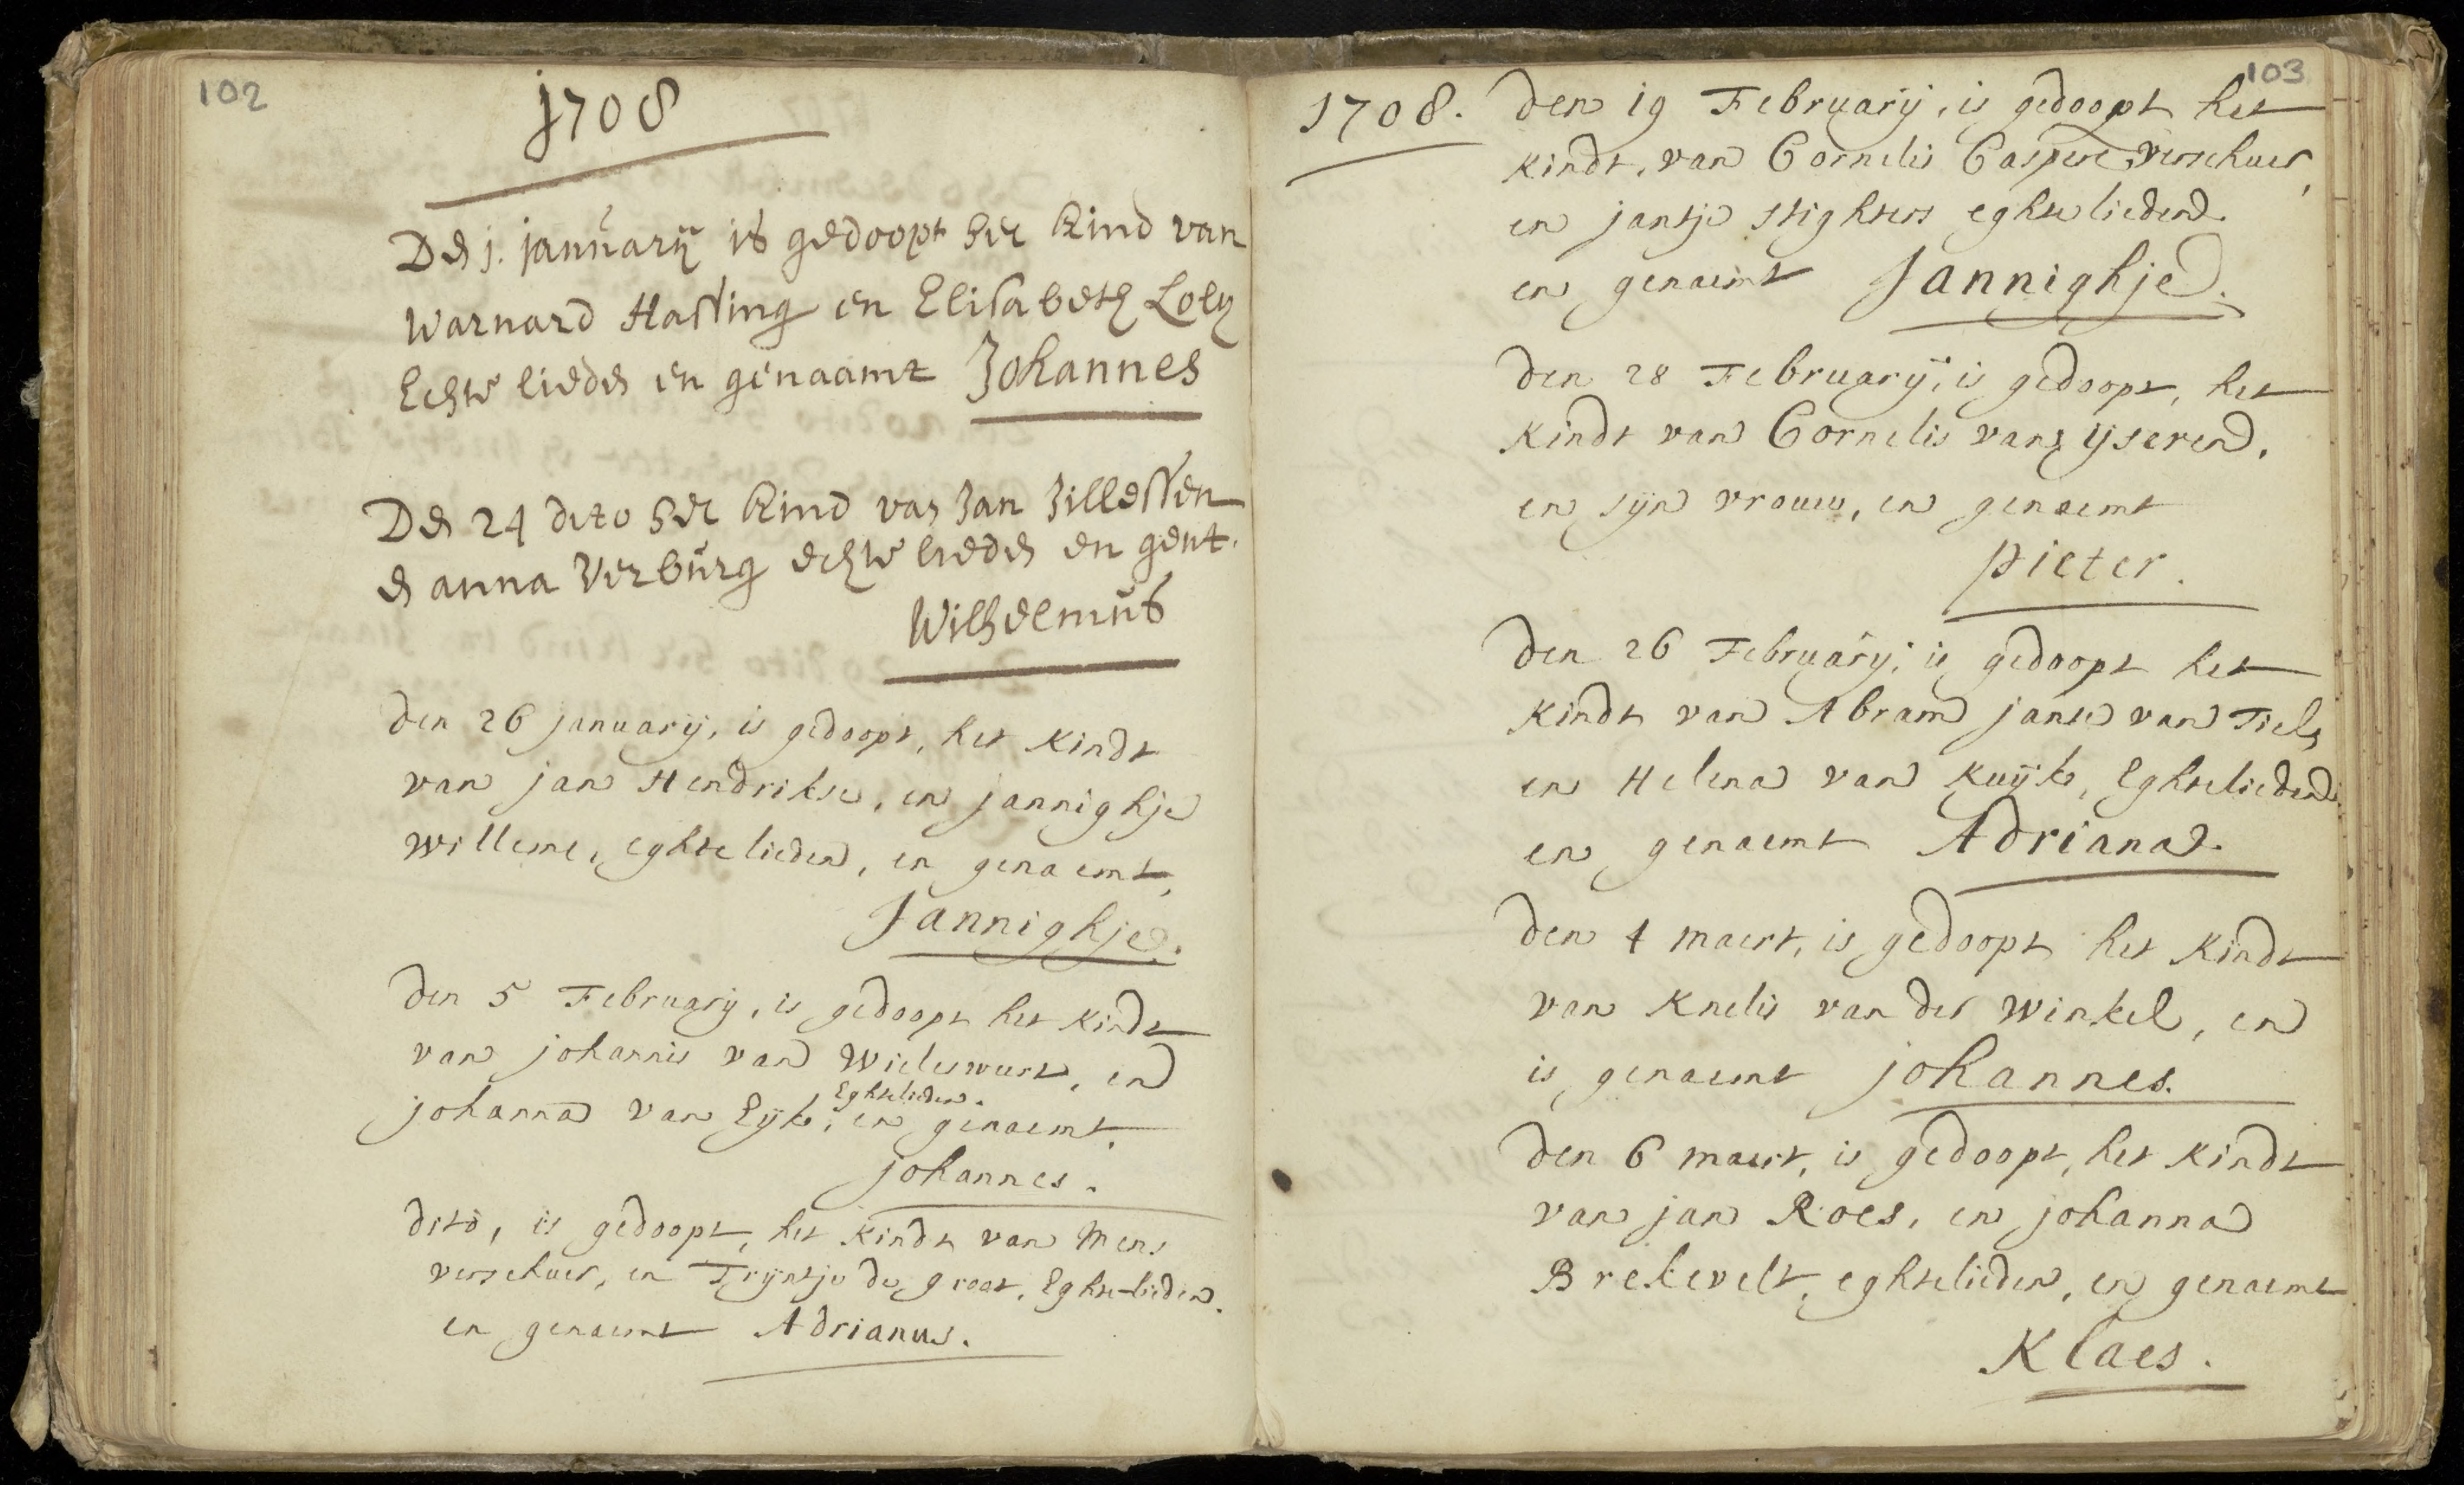 102
1708
Den 1. january is gedoopt het kind van
Warnard Hassing en Elisabeth Loly
Echte lieden en genaamt Johannes
Den 24 dito het kind van Jan Jillessen
en anna Verburg echte lieden en gent.
Wilhelmus
den 26 january, is gedoopt, het kindt
van jan Hendrikse, en jannighje
Willems, eghte lieden, en genaemt,
Jannighje.
den 5 February, is gedoopt het kindt
van johannis van Wieleswurt, en
Eghtelieden.
johanna van Eyk, en genaemt,
johannes.
dito, is gedoopt, het kindt van Mens
verschuer, en Trijntje de groot, Eghte-lieden.
en genaemt Adrianus.
103
1708. den 19 February, is gedoopt het
kindt, van Cornelis Caspers verschuer,
en jantje stighters eghte lieden
en genaemt Jannighje.
den 28 February, is gedoopt, het
kindt van Cornelis van ijseren,
en sijn vrouw, en genaemt
pieter.
den 26 February, is gedoopt het
kindt van Abram janse van Tiel,
en Helena van Kuijk, Eghtelieden
en genaemt Adriana.
den 4 maert, is gedoopt het kindt
van Knelis van der Winkel, en
is genaemt johannes.
den 6 maert, is gedoopt, het kindt
van jan Roes, en johanna
Brekevelt, eghtelieden, en genaemt
Klaes.